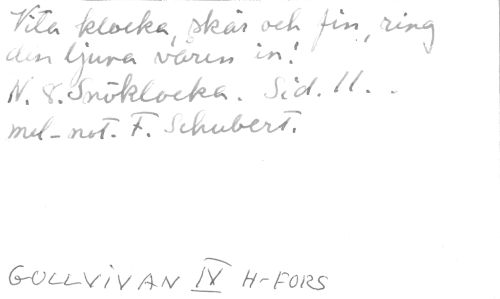 Vita klocka, skär och fin, ring
den ljuva våren in!
N. 8. Snöklocka. Sid. 11. .
mel-not. F. Schubert.
GULLVIVAN IV H-FORS